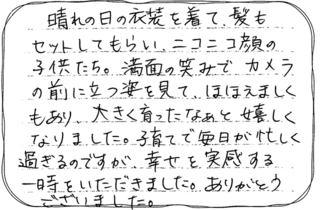 晴れの日の衣装を着て、髪も
セットしてもらい、ニコニコ顔の
子供たち。満面の笑みで カメラ
の前に立つ姿を見て、ほほえましく
もあり、大きく育ったなぁと嬉しく
なりました。子育てで毎日が忙しく
過ぎるのですが、幸せを実感する
一時をいただきました。ありがとう
ございました。